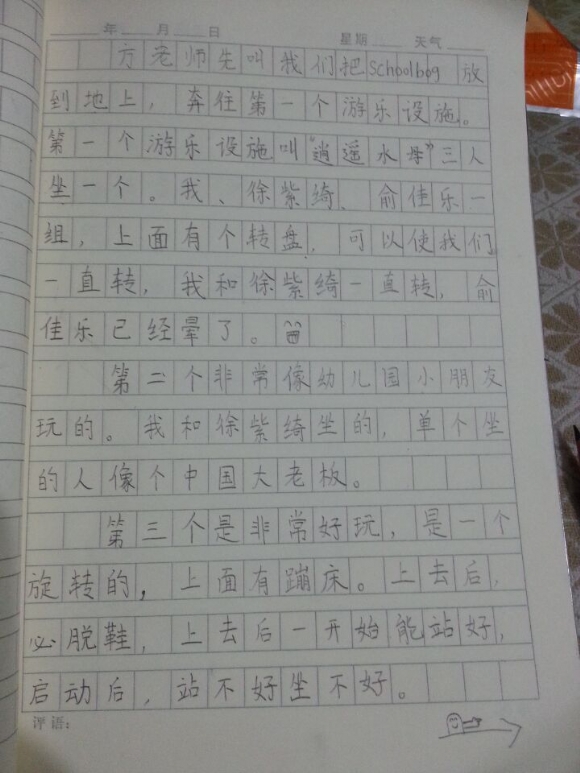 年 月 日 星期 天气
方老师先叫我们把schoolbag 放
到地上，奔往第一个游乐设施。
第一个游乐设施叫“逍遥水母”三人
坐一个。我、徐紫绮、俞佳乐一
组，上面有个转盘，可以使我们
一直转，我和徐紫绮一直转，俞
佳乐已经晕了。
第二个非常像幼儿园小朋友
玩的。我和徐紫绮坐的，单个坐
的人像个中国大老板。
第三个是非常好玩，是一个
旋转的，上面有蹦床。上去后，
必脱鞋，上去后一开始能站好，
启动后，站不好坐不好。
评语：